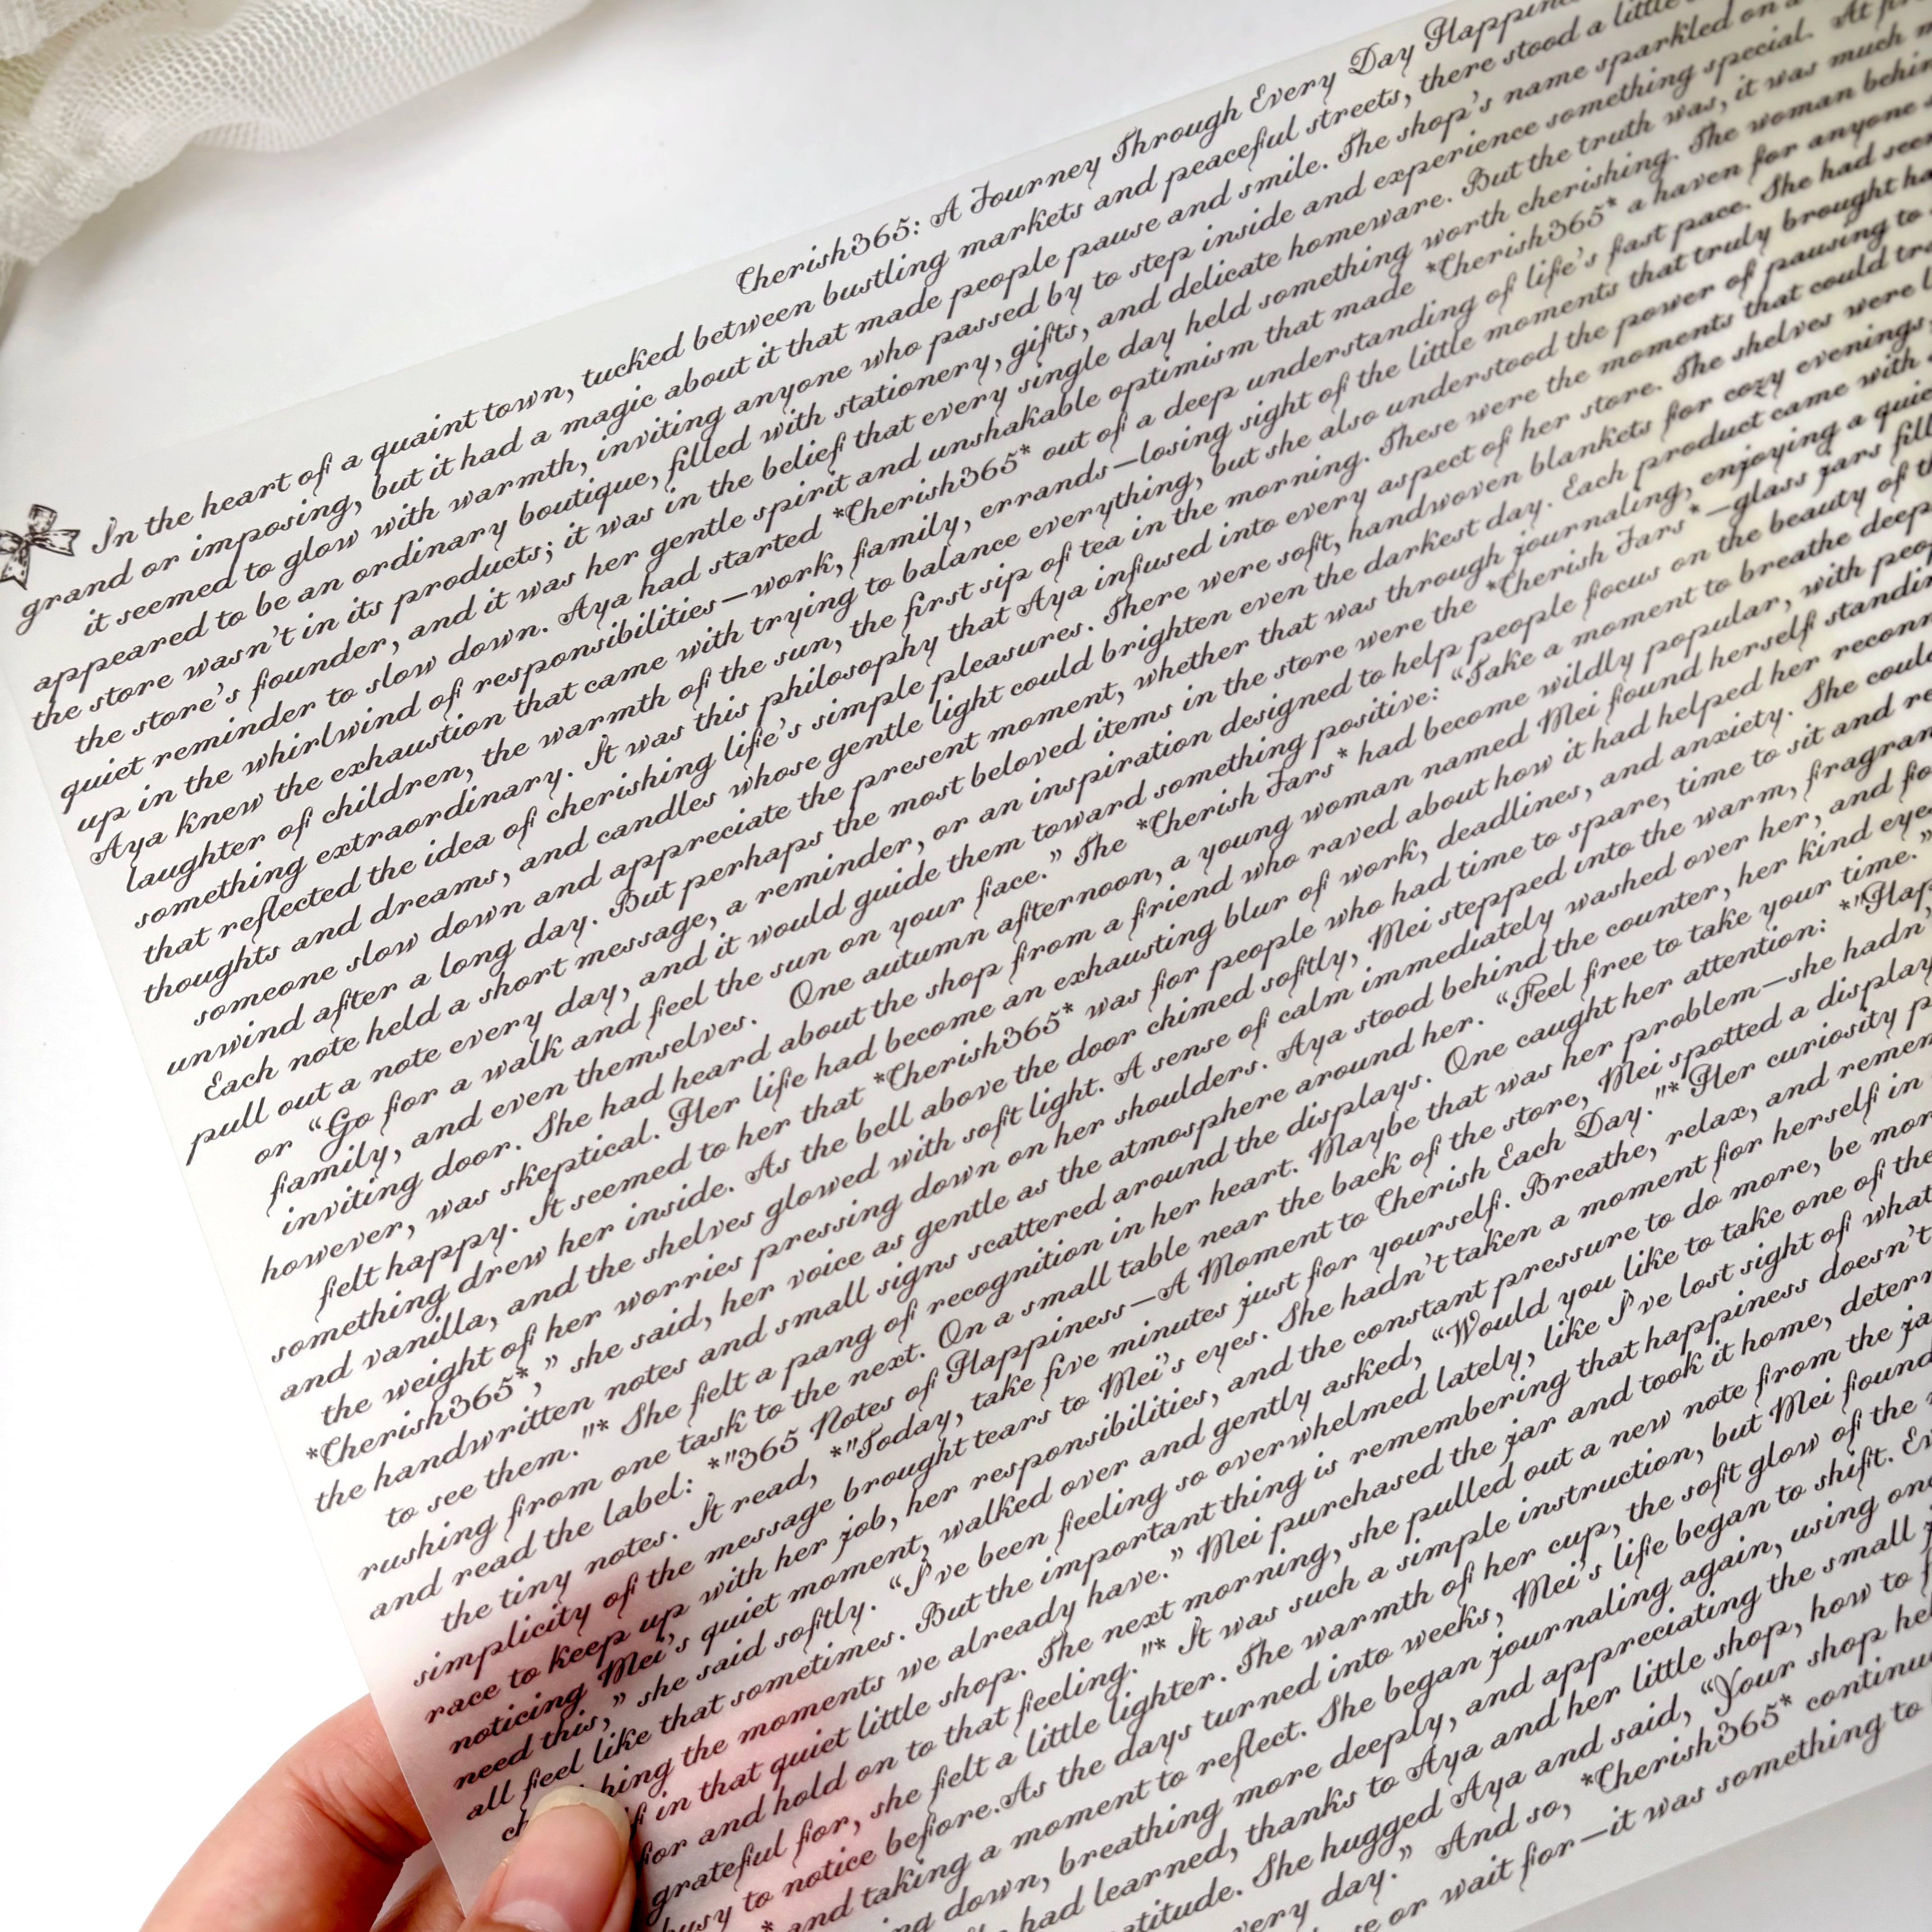 Cherish365: A Journey Through Every Day
In the heart of a quaint town, tucked between bustling markets and peaceful streets, there stood a little
grand or imposing, but it had a magic about it that made people pause and smile. The shop's name sparkled on a
it seemed to glow with warmth, inviting anyone who passed by to step inside and experience something special. At
appeared to be an ordinary boutique, filled with stationery, gifts, and delicate homeware. But the truth was, it was much
the store wasn't in its products; it was in the belief that every single day held something worth cherishing. The woman behind
the store's founder, and it was her gentle spirit and unshakable optimism that made *Cherish365* a haven for anyone
quiet reminder to slow down. Aya had started *Cherish365* out of a deep understanding of life's fast pace. She had seen
up in the whirlwind of responsibilities—work, family, errands—losing sight of the little moments that truly brought
Aya knew the exhaustion that came with trying to balance everything, but she also understood the power of pausing to
laughter of children, the warmth of the sun, the first sip of tea in the morning. These were the moments that could
something extraordinary. It was this philosophy that Aya infused into every aspect of her store. The shelves were
that reflected the idea of cherishing life's simple pleasures. There were soft, handwoven blankets for cozy evenings,
thoughts and dreams, and candles whose gentle light could brighten even the darkest day. Each product came with
someone slow down and appreciate the present moment, whether that was through journaling, enjoying a
unwind after a long day. But perhaps the most beloved items in the store were the *Cherish Jars*—glass jars
Each note held a short message, a reminder, or an inspiration designed to help people focus on the beauty of
pull out a note every day, and it would guide them toward something positive: “Take a moment to breathe
or “Go for a walk and feel the sun on your face.” The *Cherish Jars* had become wildly popular, with
family, and even themselves. One autumn afternoon, a young woman named Mei found herself
inviting door. She had heard about the shop from a friend who raved about how it had helped her
however, was skeptical. Her life had become an exhausting blur of work, deadlines, and anxiety. She
felt happy. It seemed to her that *Cherish365* was for people who had time to spare, time to sit and
something drew her inside. As the bell above the door chimed softly, Mei stepped into the warm,
and vanilla, and the shelves glowed with soft light. A sense of calm immediately washed over her, and
the weight of her worries pressing down on her shoulders. Aya stood behind the counter, her kind
*Cherish365*,” she said, her voice as gentle as the atmosphere around her. “Feel free to take your time.”
the handwritten notes and small signs scattered around the displays. One caught her attention:
to see them."* She felt a pang of recognition in her heart. Maybe that was her problem—she
rushing from one task to the next. On a small table near the back of the store, Mei spotted a display
and read the label: *"365 Notes of Happiness—A Moment to Cherish Each Day."* Her curiosity
the tiny notes. It read, *"Today, take five minutes just for yourself. Breathe, relax, and
simplicity of the message brought tears to Mei's eyes. She hadn't taken a moment for herself in
race to keep up with her job, her responsibilities, and the constant pressure to do more, be
noticing Mei's quiet moment, walked over and gently asked, “Would you like to take one of
need this,” she said softly. “I've been feeling so overwhelmed lately, like I've lost sight of
all feel like that sometimes. But the important thing is remembering that happiness doesn't
the moments we already have.” Mei purchased the jar and took it home,
in that quiet little shop. The next morning, she pulled out a new note from the
for and hold on to that feeling."* It was such a simple instruction, but Mei
grateful for, she felt a little lighter. The warmth of her cup, the soft glow of the
to notice before.As the days turned into weeks, Mei's life began to shift.
and taking a moment to reflect. She began journaling again, using
down, breathing more deeply, and appreciating the small
had learned, thanks to Aya and her little shop, how to
She hugged Aya and said, “Your shop
day.” And so, *Cherish365*
or wait for—it was something to